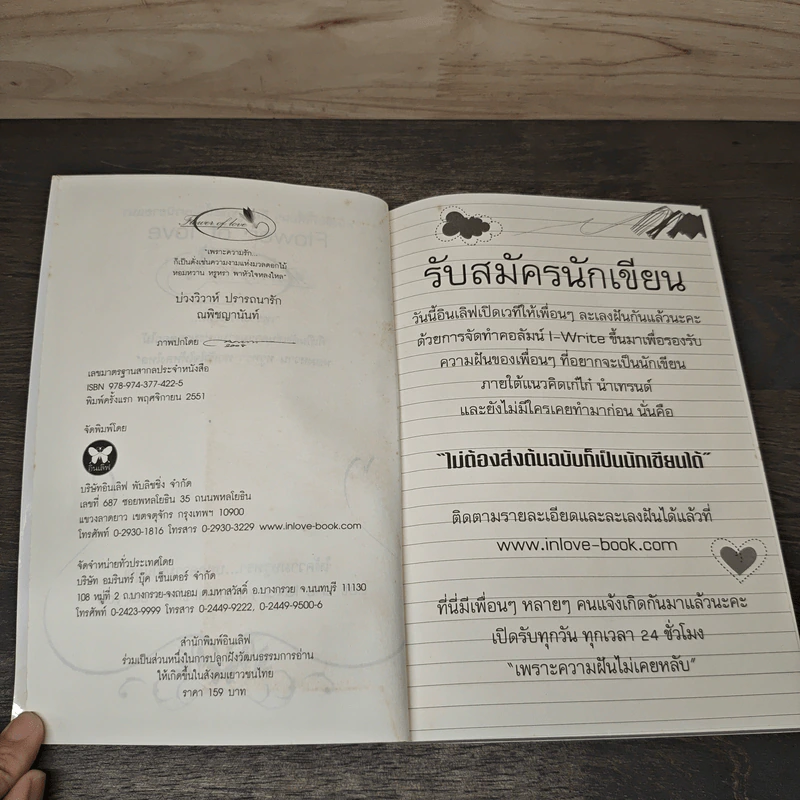 Flower of love
"เพราะความรัก...
ก็เป็นดั่งเช่นความงามแห่งมวลดอกไม้
หอมหวาน หรูหรา พาหัวใจหลงใหล"
บ่วงวิวาห์ ปรารถนารัก
ณพิชญานันท์
ภาพปกโดย
เลขมาตรฐานสากลประจำหนังสือ
ISBN 978-974-377-422-5
พิมพ์ครั้งแรก พฤศจิกายน 2551
จัดพิมพ์โดย
อินเลิฟ
บริษัทอินเลิฟ พับลิชชิ่ง จำกัด
เลขที่ 687 ซอยพหลโยธิน 35 ถนนพหลโยธิน
แขวงลาดยาว เขตจตุจักร กรุงเทพฯ 10900
โทรศัพท์ 0-2930-1816 โทรสาร 0-2930-3229 www.inlove-book.com
จัดจำหน่ายทั่วประเทศโดย
บริษัท อมรินทร์ บุ๊ค เซ็นเตอร์ จำกัด
108 หมู่ที่ 2 ถ.บางกรวย-จงถนอม ต.มหาสวัสดิ์ อ.บางกรวย จ.นนทบุรี 11130
โทรศัพท์ 0-2423-9999 โทรสาร 0-2449-9222, 0-2449-9500-6
สำนักพิมพ์อินเลิฟ
ร่วมเป็นส่วนหนึ่งในการปลูกฝังวัฒนธรรมการอ่าน
ให้เกิดขึ้นในสังคมเยาวชนไทย
ราคา 159 บาท
รับสมัครนักเขียน
วันนี้อินเลิฟเปิดเวทีให้เพื่อนๆ ละเลงฝันกันแล้วนะคะ
ด้วยการจัดทำคอลัมน์ I-Write ขึ้นมาเพื่อรองรับ
ความฝันของเพื่อนๆ ที่อยากจะเป็นนักเขียน
ภายใต้แนวคิดเก๋ไก๋ นำเทรนด์
และยังไม่มีใครเคยทำมาก่อน นั่นคือ
"ไม่ต้องส่งต้นฉบับก็เป็นนักเขียนได้"
ติดตามรายละเอียดและละเลงฝันได้แล้วที่
www.inlove-book.com
ที่นี่มีเพื่อนๆ หลายๆ คนแจ้งเกิดกันมาแล้วนะคะ
เปิดรับทุกวัน ทุกเวลา 24 ชั่วโมง
"เพราะความฝันไม่เคยหลับ"